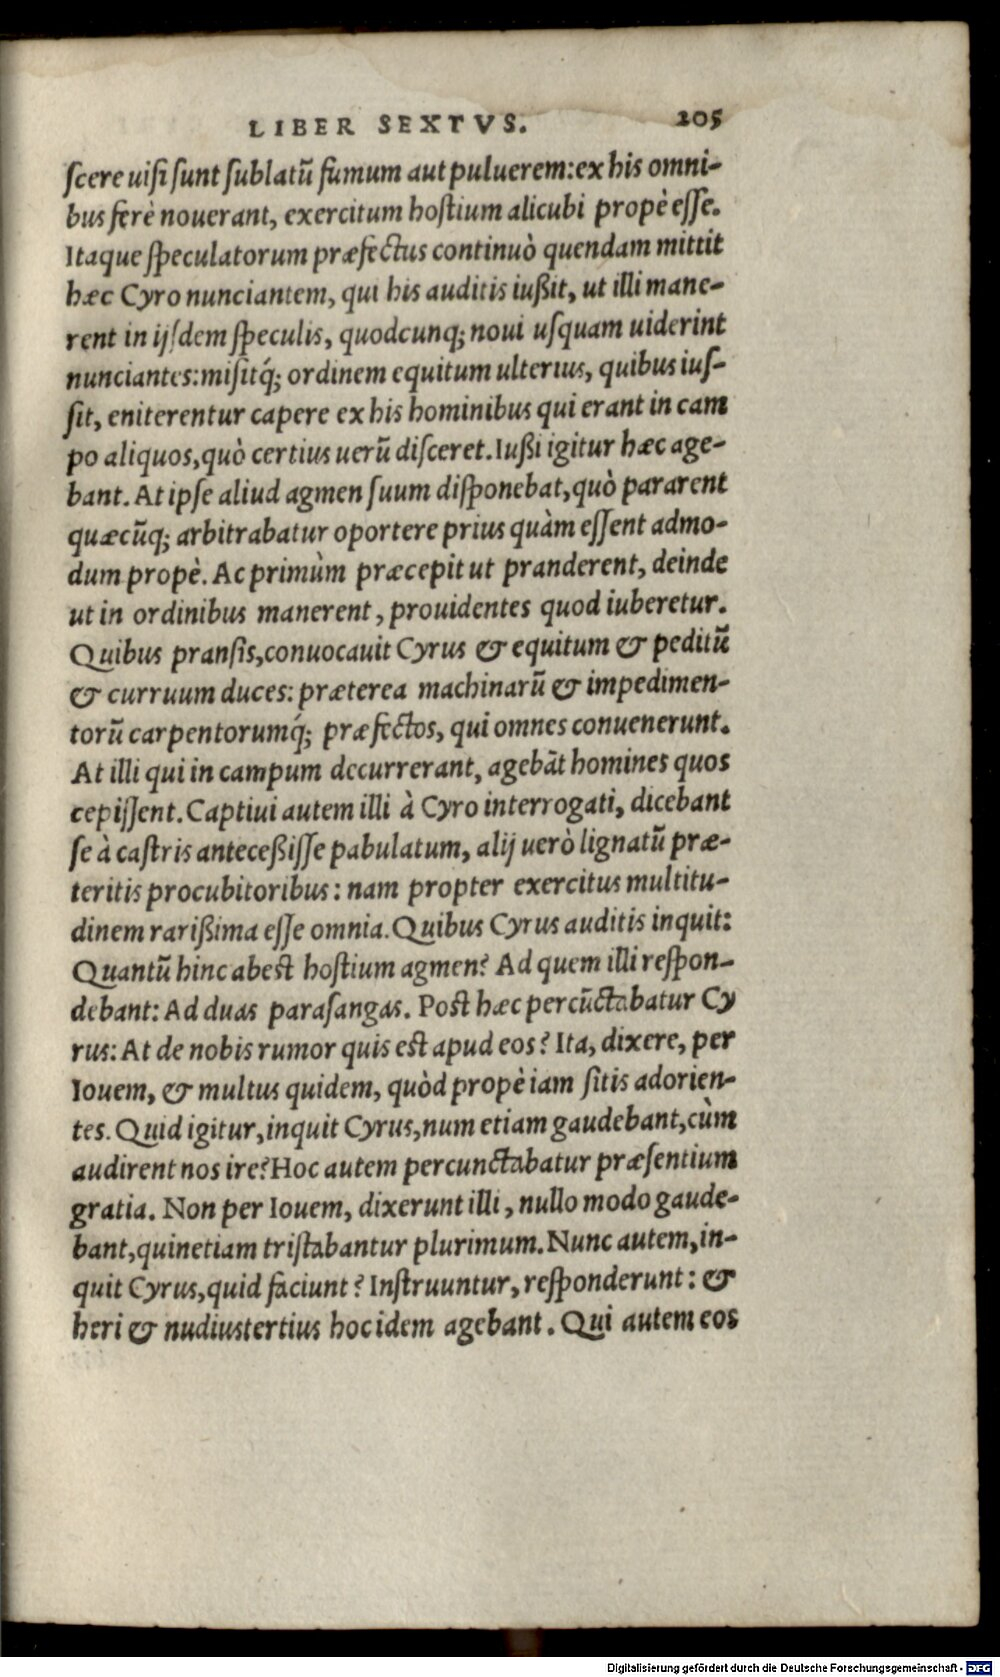 LIBER SEXTVS. 205
scere uisi sunt sublatũ fumum aut puluerem: ex his omni-
bus ferè nouerant, exercitum hostium alicubi propè esse.
Itaque speculatorum præfectus continuò quendam mittit
hæc Cyro nunciantem, qui his auditis iußit, ut illi mane-
rent in ijsdem speculis, quodcunq; noui usquam uiderint
nunciantes: misitq́; ordinem equitum ulterius, quibus ius-
sit, eniterentur capere ex his hominibus qui erant in cam
po aliquos, quò certius uerũ disceret. Iußi igitur hæc age-
bant. At ipse aliud agmen suum disponebat, quò pararent
quæcũq; arbitrabatur oportere prius quàm essent admo-
dum propè. Ac primùm præcepit ut pranderent, deinde
ut in ordinibus manerent, prouidentes quod iuberetur.
Quibus pransis, conuocauit Cyrus & equitum & peditũ
& curruum duces: præterea machinarũ & impedimen-
torũ carpentorumq́; præfectos, qui omnes conuenerunt.
At illi qui in campum decurrerant, agebãt homines quos
cepissent. Captiui autem illi à Cyro interrogati, dicebant
se à castris anteceßisse pabulatum, alij uerò lignatũ præ-
teritis procubitoribus: nam propter exercitus multitu-
dinem rarißima esse omnia. Quibus Cyrus auditis inquit:
Quantũ hinc abest hostium agmen? Ad quem illi respon-
debant: Ad duas parasangas. Post hæc percũctabatur Cy
rus: At de nobis rumor quis est apud eos? Ita, dixere, per
Iouem, & multus quidem, quòd propè iam sitis adorien-
tes. Quid igitur, inquit Cyrus, num etiam gaudebant, cùm
audirent nos ire? Hoc autem percunctabatur præsentium
gratia. Non per Iouem, dixerunt illi, nullo modo gaude-
bant, quinetiam tristabantur plurimum. Nunc autem, in-
quit Cyrus, quid faciunt? Instruuntur, responderunt: &
heri & nudiustertius hoc idem agebant. Qui autem eos
Digitalisierung gefördert durch die Deutsche Forschungsgemeinschaft - DFG